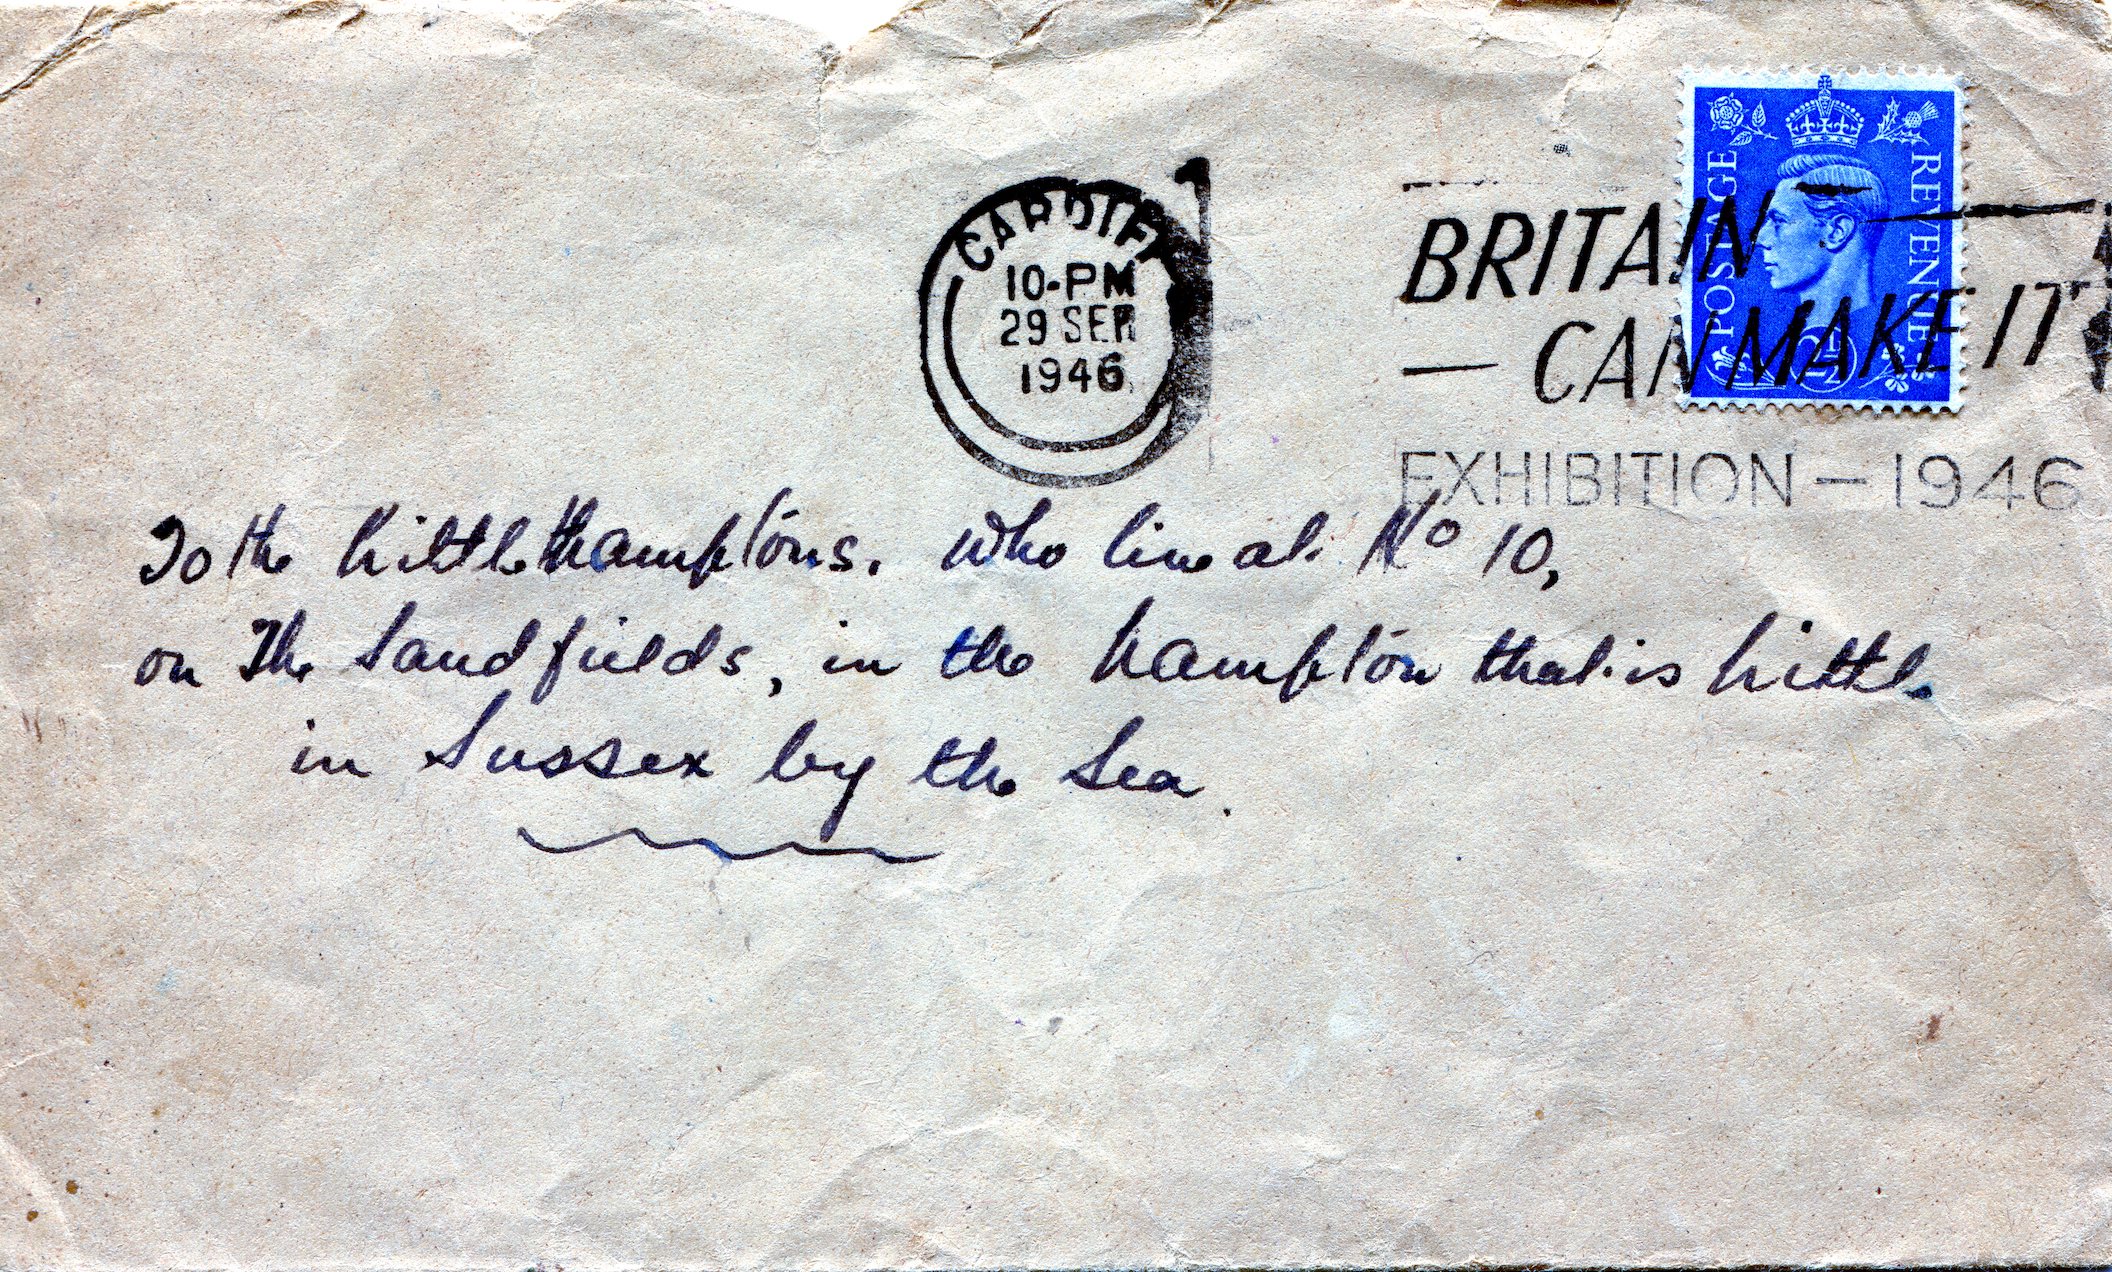 CARDIFF
10-PM
29 SEP
1946
BRITAIN
— CAN MAKE IT
EXHIBITION — 1946
POSTAGE
REVENUE
2½D
To the Littlehamptons. Who live at No 10,
on The Sandfields, in the hampton that is little
in Sussex by the Sea.